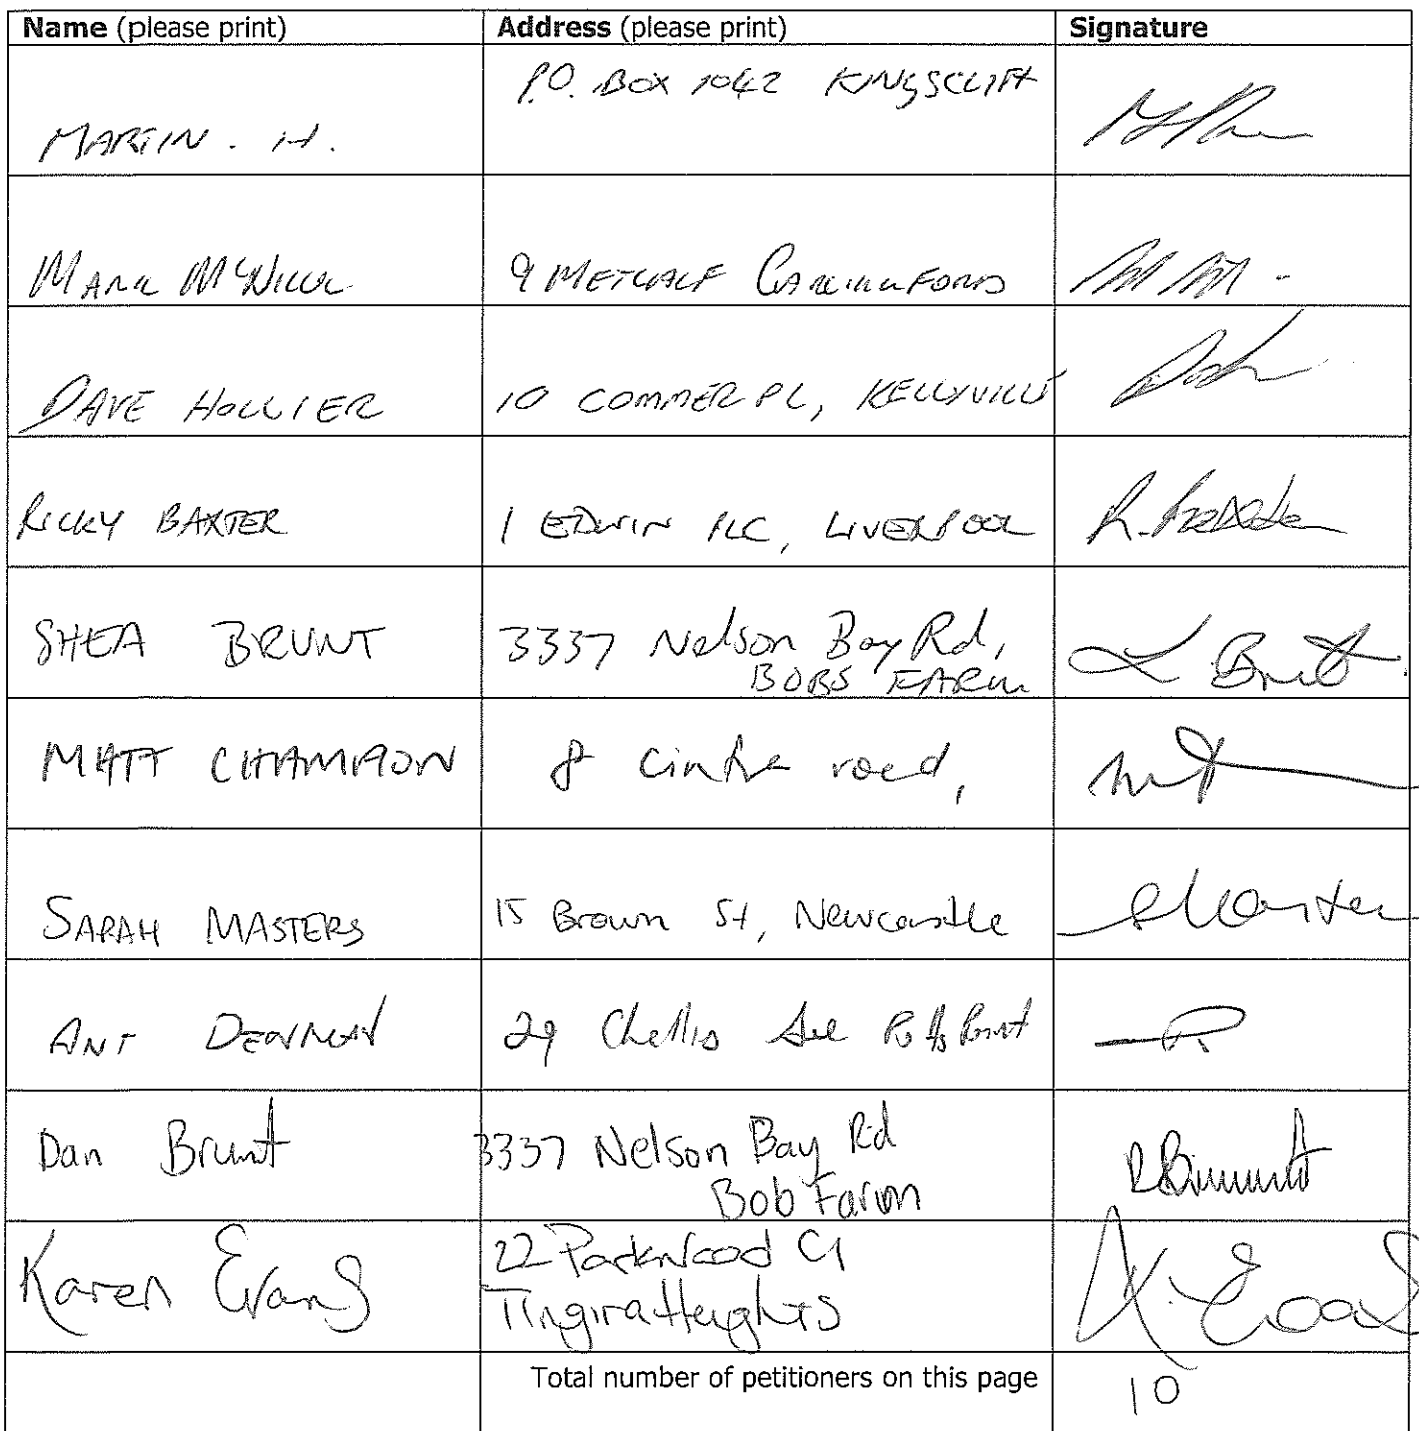 Name (please print) Address (please print) Signature
P.O. BOX 1042 KINGSCLIFF
MARTIN. H.
MARK McNICOL 9 METCALF CARLINGFORD
DAVE HOLLIER 10 COMMER PL, KELLYVILLE
RICKY BAXTER 1 EDWIN PLC, LIVERPOOL R. Baxter
SHEA BRUNT 3337 Nelson Bay Rd, Brunt
BOBS FARM
MATT CHAMPION 8 road,
SARAH MASTERS 15 Brown St, Newcastle SMasters
ANT 29 Challis Ave Potts Point
Dan Brunt 3337 Nelson Bay Rd DBrunt
Bob Farm
Karen Evans 22 Parkwood Cl K. Evans
Tingira Heights
Total number of petitioners on this page 10